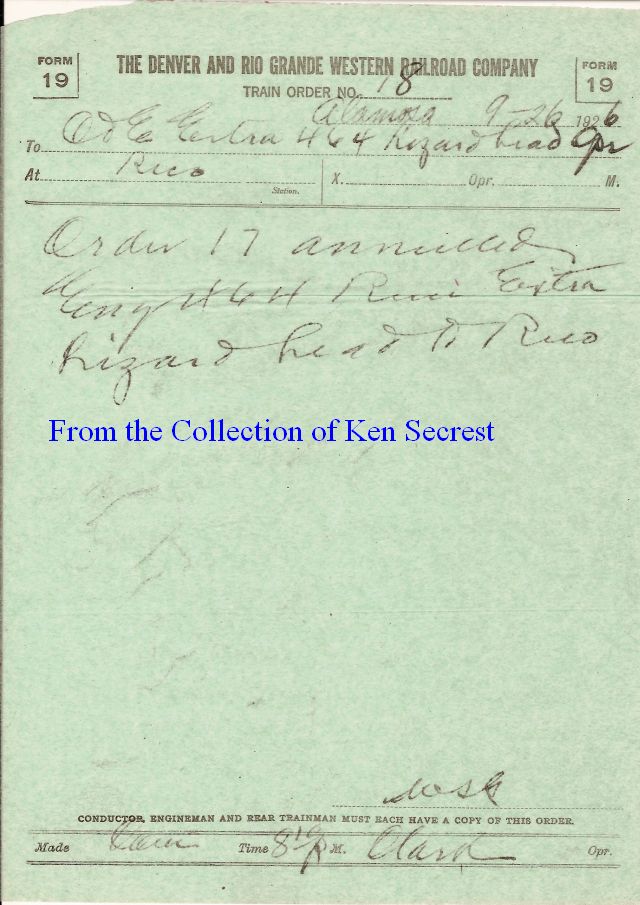 FORM 19 THE DENVER AND RIO GRANDE WESTERN RAILROAD COMPANY FORM 19
TRAIN ORDER NO. 18
Alamosa 9-26 1926
To C&E Extra 464 Lizard head Opr
At Rico X. Opr. M.
Station.
Order 17 annulled
Eng 464 Run Extra
Lizard head to Rico
From the Collection of Ken Secrest
CONDUCTOR, ENGINEMAN AND REAR TRAINMAN MUST EACH HAVE A COPY OF THIS ORDER.
Made Com Time M. Clark Opr.